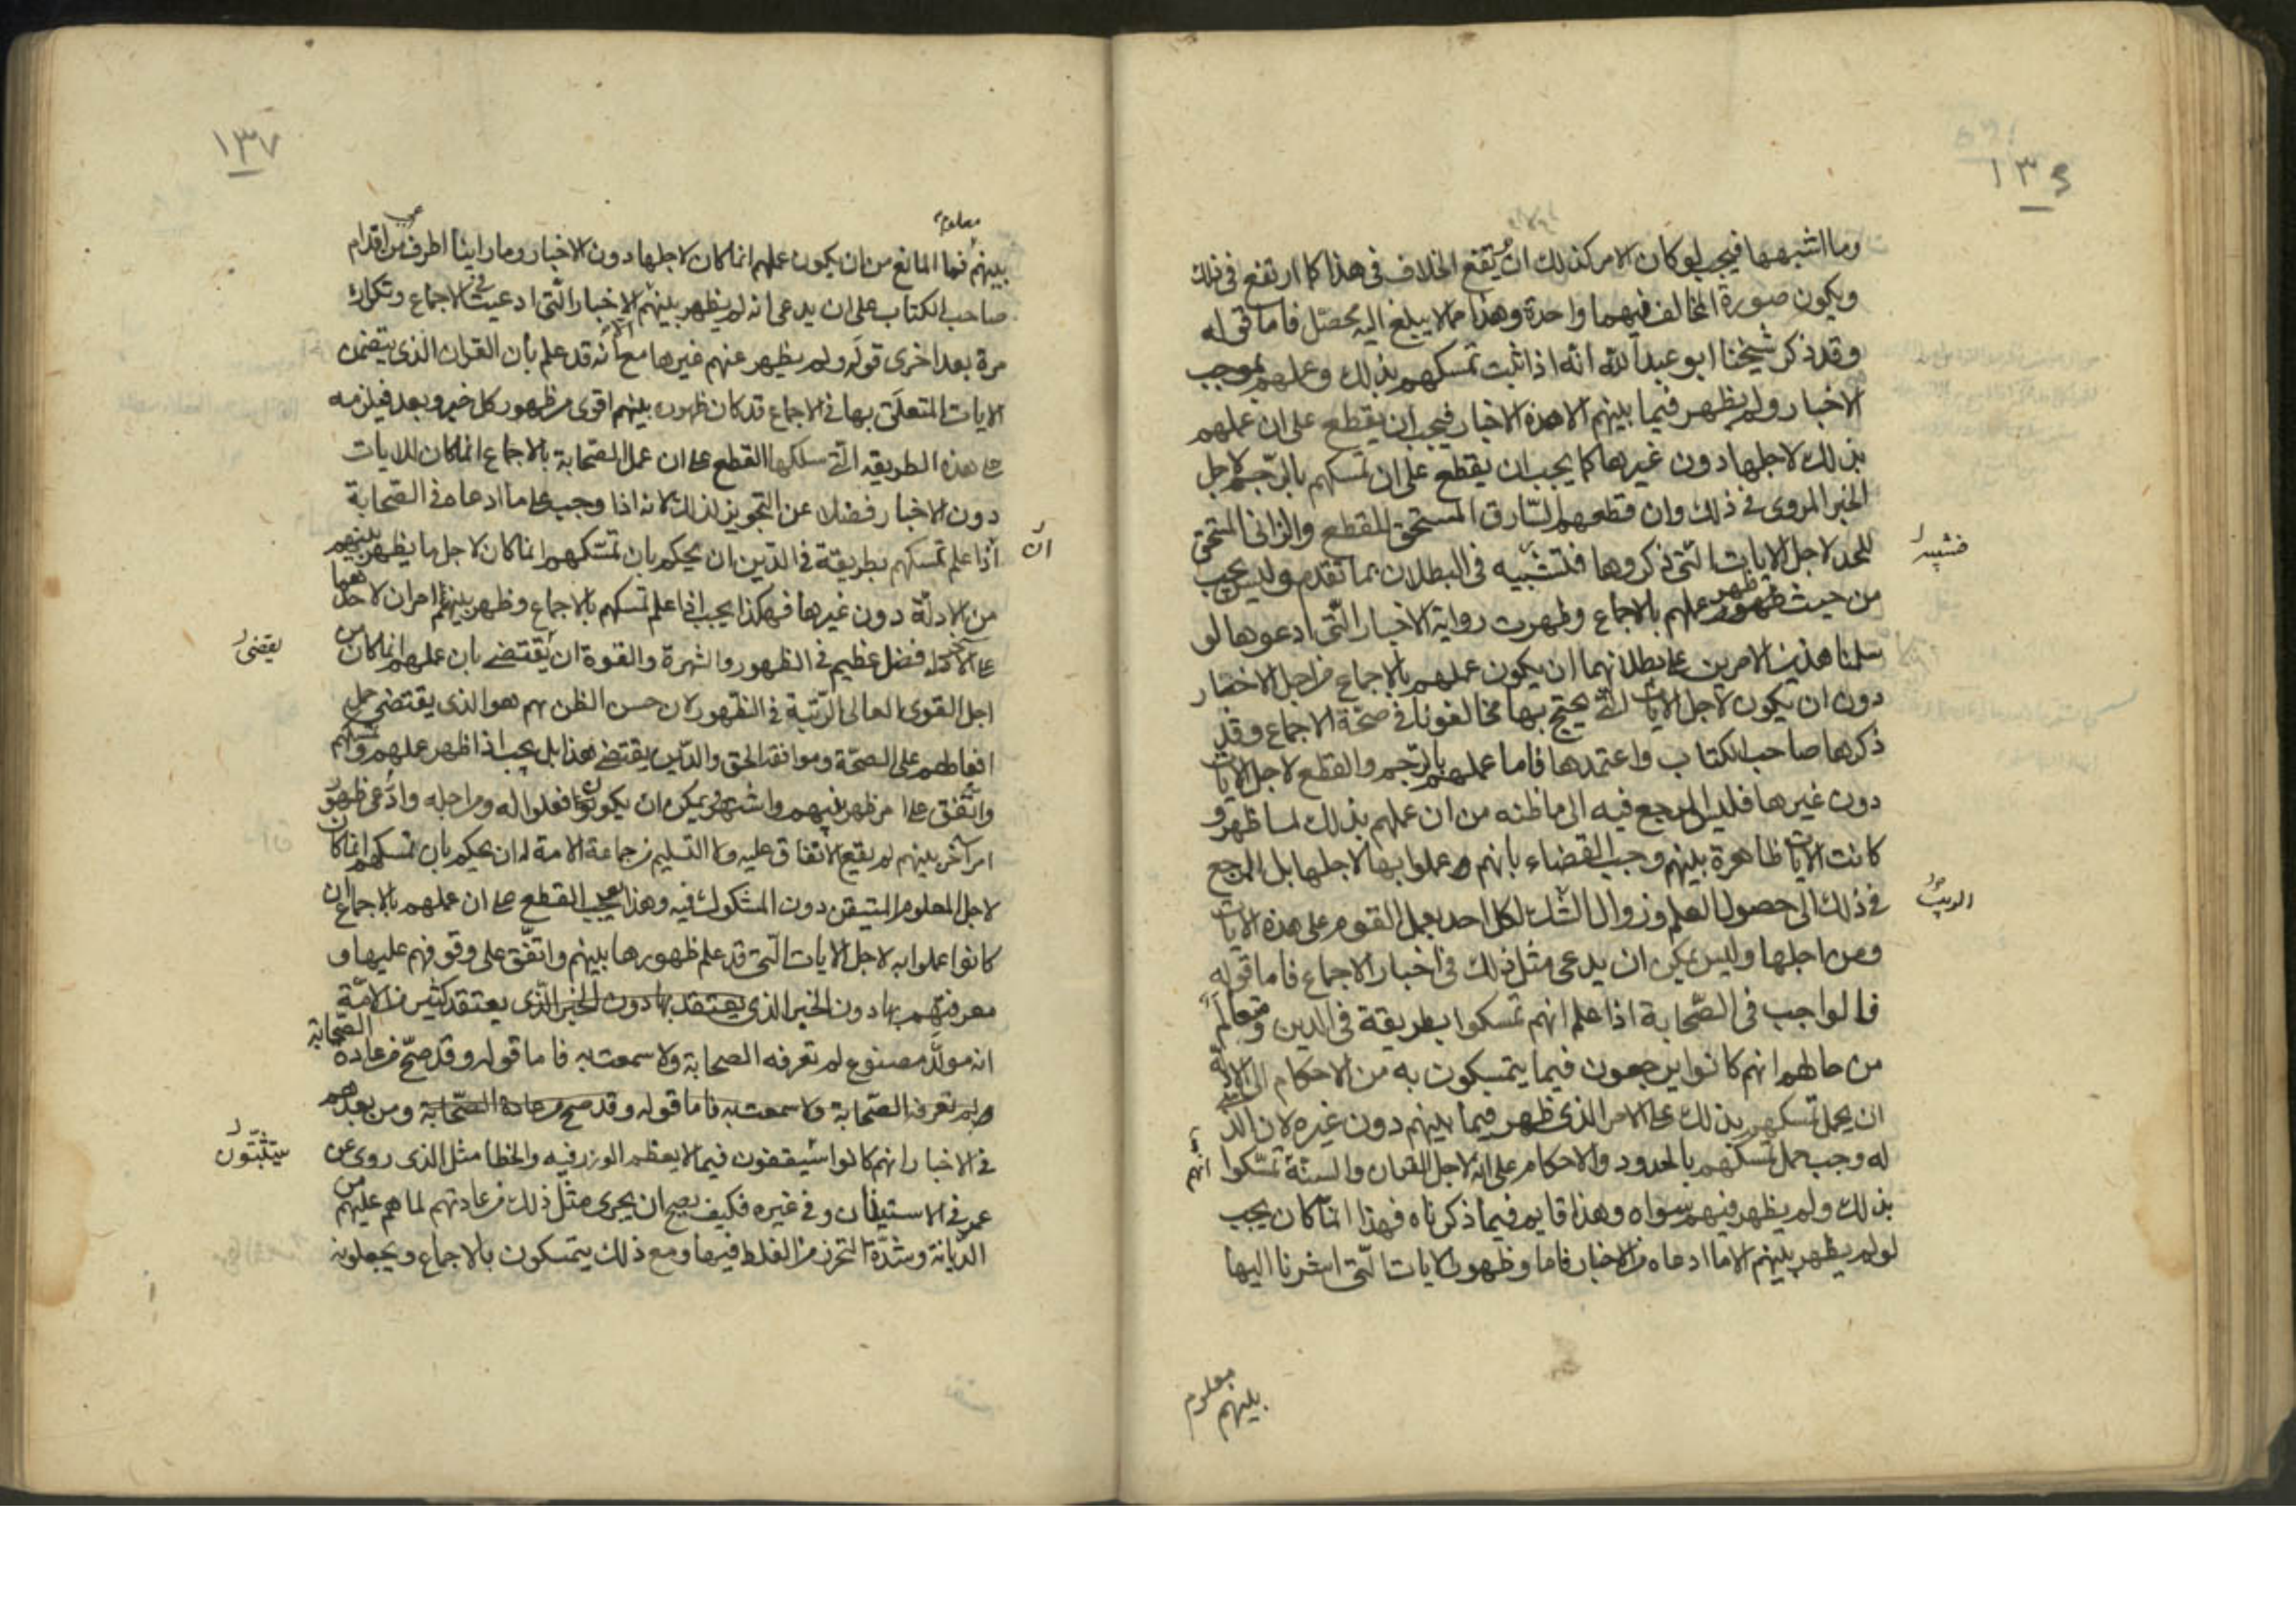 ١٣٦
وما اشبهها فيجب لو كان الامر كذلك ان يقع الخلاف فى هذا كما ارتفع فى ذلك
ويكون صورة المخالف فيهما واحدة وهذا مما لا يبلغ اليه محصّل فاما قوله
وقد ذكر شيخنا ابو عبد الله انه اذا ثبت تمسكهم بذلك وعملهم بموجب
الاخبار ولم يظهر فيما بينهم الا هذه الاخبار فيجب ان يقطع على ان عملهم
بذلك لاجلها دون غيرها كما يجب ان يقطع على ان تمسكهم بالرّجم لاجل
الخبر المروى فى ذلك وان قطعهم السّارق المستحق للقطع والزانى المستحق
للحد لاجل الايات الّتى ذكروها فتشبيه فى البطلان بما تقدم وليس يجب
من حيث ظهر عملهم بالاجماع وظهرت رواية الاخبار الّتى ادعوها لو
سلمنا هذين الامرين على بطلانهما ان يكون عملهم بالاجماع من اجل الاخبار
دون ان يكون لاجل الايات الّتى يحتج بها مخالفونا فى صحّة الاجماع وقد
ذكرها صاحب الكتاب واعتمدها فاما عملهم بالرّجم والقطع لاجل الايات
دون غيرها فليس المرجع فيه الى ما ظنه من ان عملهم بذلك لما ظهر و
كانت الايات ظاهرة بينهم وجب القضاء بانهم عملوا بها لاجلها بل المرجع
فى ذلك الى حصول العلم وزوال الشك لكل احد بعمل القوم على هذه الايات
ومن اجلها وليس يمكن ان يدعى مثل ذلك فى اخبار الاجماع فاما قوله
فالواجب فى الصّحابة اذا علم انهم تمسكوا بطريقة فى الدين وتعالم
من حالهم انهم كانوا يرجعون فيما يتمسكون به من الاحكام الى الادلة
ان يحمل تمسكهم بذلك على الامر الذى ظهر فيما بينهم دون غيره لان الذى
له وجب حمل تمسكهم بالحدود والاحكام على انه لاجل القران والسنّة تمسّكوا
بذلك ولم يظهر فيهم سواه وهذا قايم فيما ذكرناه فهذا انما كان يجب
لو لم يظهر بينهم الا ما ادعاه من الاخبار فاما وظهور الايات الّتى اشرنا اليها
فتشبيه
انهم
معلوم
بينهم
١٣٧
معلوم
بينهم فما المانع من ان يكون عملهم انما كان لاجلها دون الاخبار وما راينا اطرف من اقدام
صاحب الكتاب على ان يدعى انه لم يظهر بينهم الا الاخبار الّتى ادعيت فى الاجماع وتكراره
مرة بعد اخرى قوله ولم يظهر عنهم غيرها مع انه قد علم بان القران الذى يتضمن
الايات المتعلق بها فى الاجماع قد كان ظهوره بينهم اقوى من ظهور كل خبر وبعد فيلزمه
على هذه الطريقه الّتى سلكها القطع على ان عمل الصحابة بالاجماع انما كان للايات
دون الاخبار فضلا عن التجويز لذلك لانه اذا وجب على ما ادعاه فى الصّحابة
اذا علم تمسكهم بطريقة فى الدّين ان يحكم بان تمسّكهم انما كان لاجل ما يظهر بينهم
من الادلّة دون غيرها فهكذا يجب اذا علم تمسكهم بالاجماع وظهر بينهم امران لاحدهما
على الاخر فضل عظيم فى الظهور والشهرة والقوة ان يقتضى بان عملهم انما كان من
اجل القوى العالى الرّتبة فى الظهور لان حسن الظن بهم هو الذى يقتضى حمل
افعالهم على الصحّة وموافقة الحق والدّين يقتضى هذا بل يجب اذا ظهر عملهم وتمسكهم
واتّفق على امر ظهر بينهم واشتهر يمكن ان يكونوا فعلوا له ومن اجله وادّعى ظهور
امر اخر بينهم لم يقع الاتفاق عليه ولا التسليم من جماعة الامة له ان يحكم بان تمسكهم انما كان
لاجل المعلوم المتيقن دون المشكوك فيه وهذا يوجب القطع على ان عملهم بالاجماع ان
كانوا عملوا به لاجل الايات الّتى قد علم ظهورها بينهم واتفّق على وقوفهم عليها و
معرفتهم بها دون الخبر الذى يعتقد بها دون الخبر الّذى يعتقد كثير من الامّة
انه مولّد مصنوع لم تعرفه الصحابة ولا سمعت به فاما قوله وقد صحّ من عادة الصّحابة
ولم تعرفه الصّحابة ولا سمعت به فاما قوله وقد صح من عادة الصّحابة ومن بعدهم
فى الاخبار انهم كانوا فيما لا يعظم الوزر فيه والخطا مثل الذى روى عن
عمر فى الاستيذان وفى غيره فكيف يصح ان يجرى مثل ذلك من عادتهم لما هم عليهم من
الدّيانة وشدّة التحرز من الغلط فيها ومع ذلك يتمسكون بالاجماع ويجعلونه
ان
يقضى
يتثبّتون